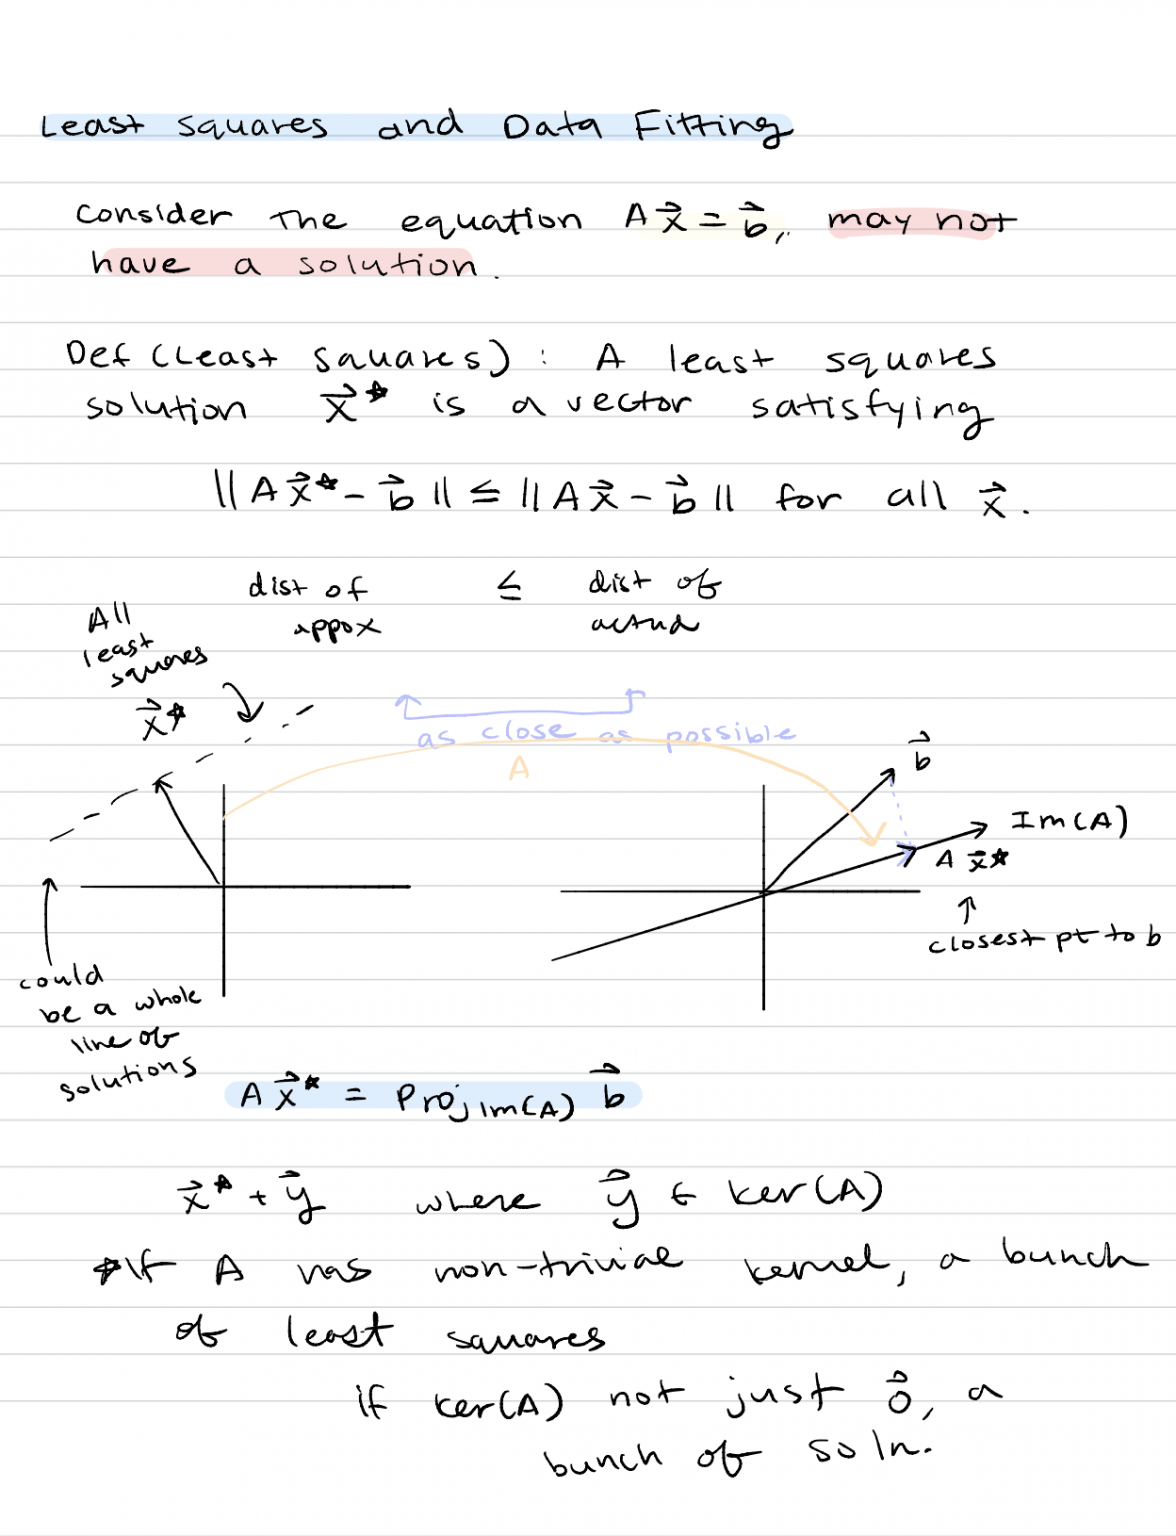 Least squares and Data Fitting
Consider the equation A x⃗ = b⃗, may not
have a solution.
Def (Least squares) : A least squares
solution x⃗* is a vector satisfying
||A x⃗* - b⃗ || ≤ ||A x⃗ - b⃗ || for all x⃗.
dist of ≤ dist of
appox actual
All
least
squares
x⃗*
as close as possible
A
b⃗
Im(A)
A x⃗*
closest pt to b
could
be a whole
line of
solutions
A x⃗* = Proj Im(A) b⃗
x⃗* + y⃗ where y⃗ ∈ ker(A)
*If A has non-trivial kernel, a bunch
of least squares
if ker(A) not just 0⃗, a
bunch of soln.